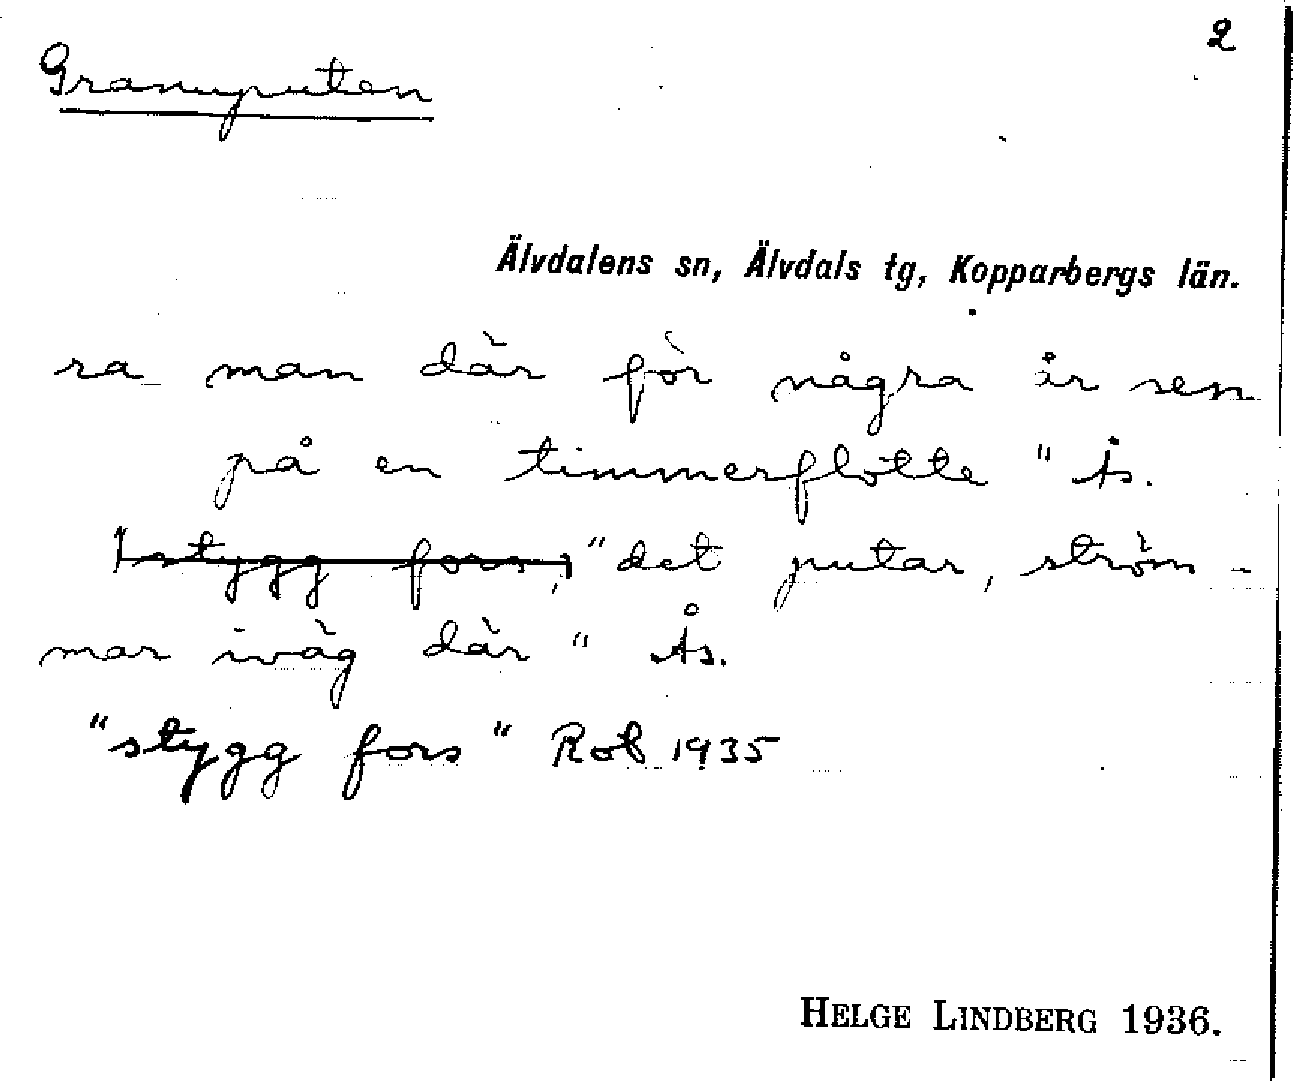 2
Granuputen
Älvdalens sn, Älvdals tg, Kopparbergs län.
ra man där för några år sen
på en timmerflotte" Ås.
[stygg fors,] "det putar, ström-
mar iväg där" Ås.
"stygg fors" Rob 1935
HELGE LINDBERG 1936.